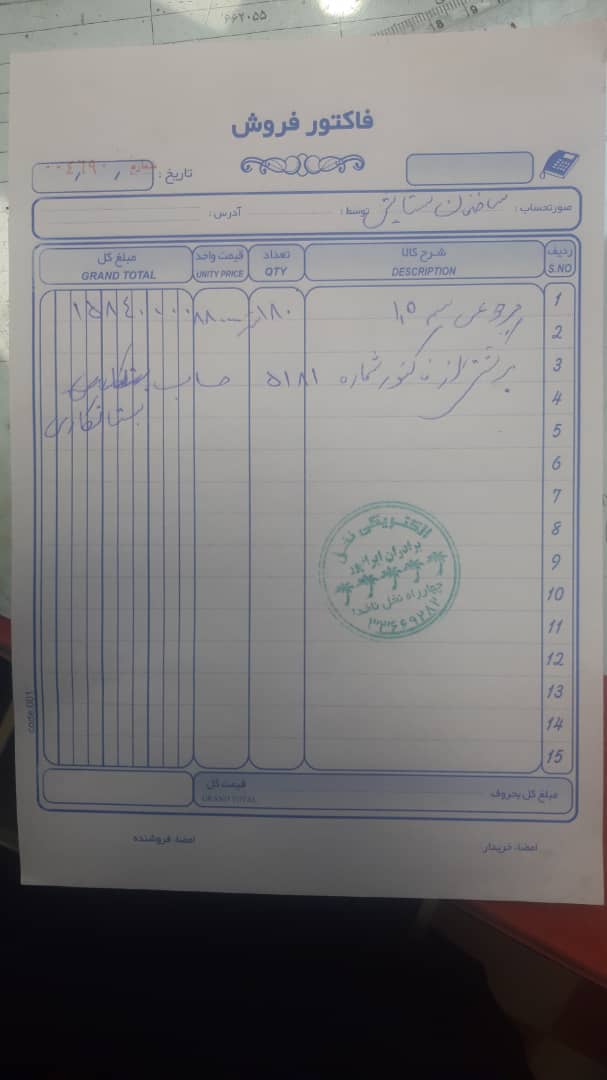 ۶۶۲۰۵۵
18
9
فاکتور فروش
شماره
تاریخ :
صورتحساب : ساختمان ستایش توسط : آدرس :
ردیف شرح کالا تعداد قیمت واحد مبلغ کل
S.NO DESCRIPTION QTY UNITY PRICE GRAND TOTAL
1 مرجوعی سیم ۱,۵ ۱۸۰ متر ۸۸۰۰۰۰ ۱۵۸۴۰۰۰۰۰
2
3 برگشتی از فاکتور شماره ۵۱۸۱ حساب
4 بستانکاری
5
6
7
8
9
10
11
12
13
14
15
الکتریکی نخل
برادران
چهارراه نخل ناخدا
۳۳۶۶۹۲۸۲
code:001
مبلغ کل بحروف قیمت کل
GRAND TOTAL
امضاء خریدار امضاء فروشنده